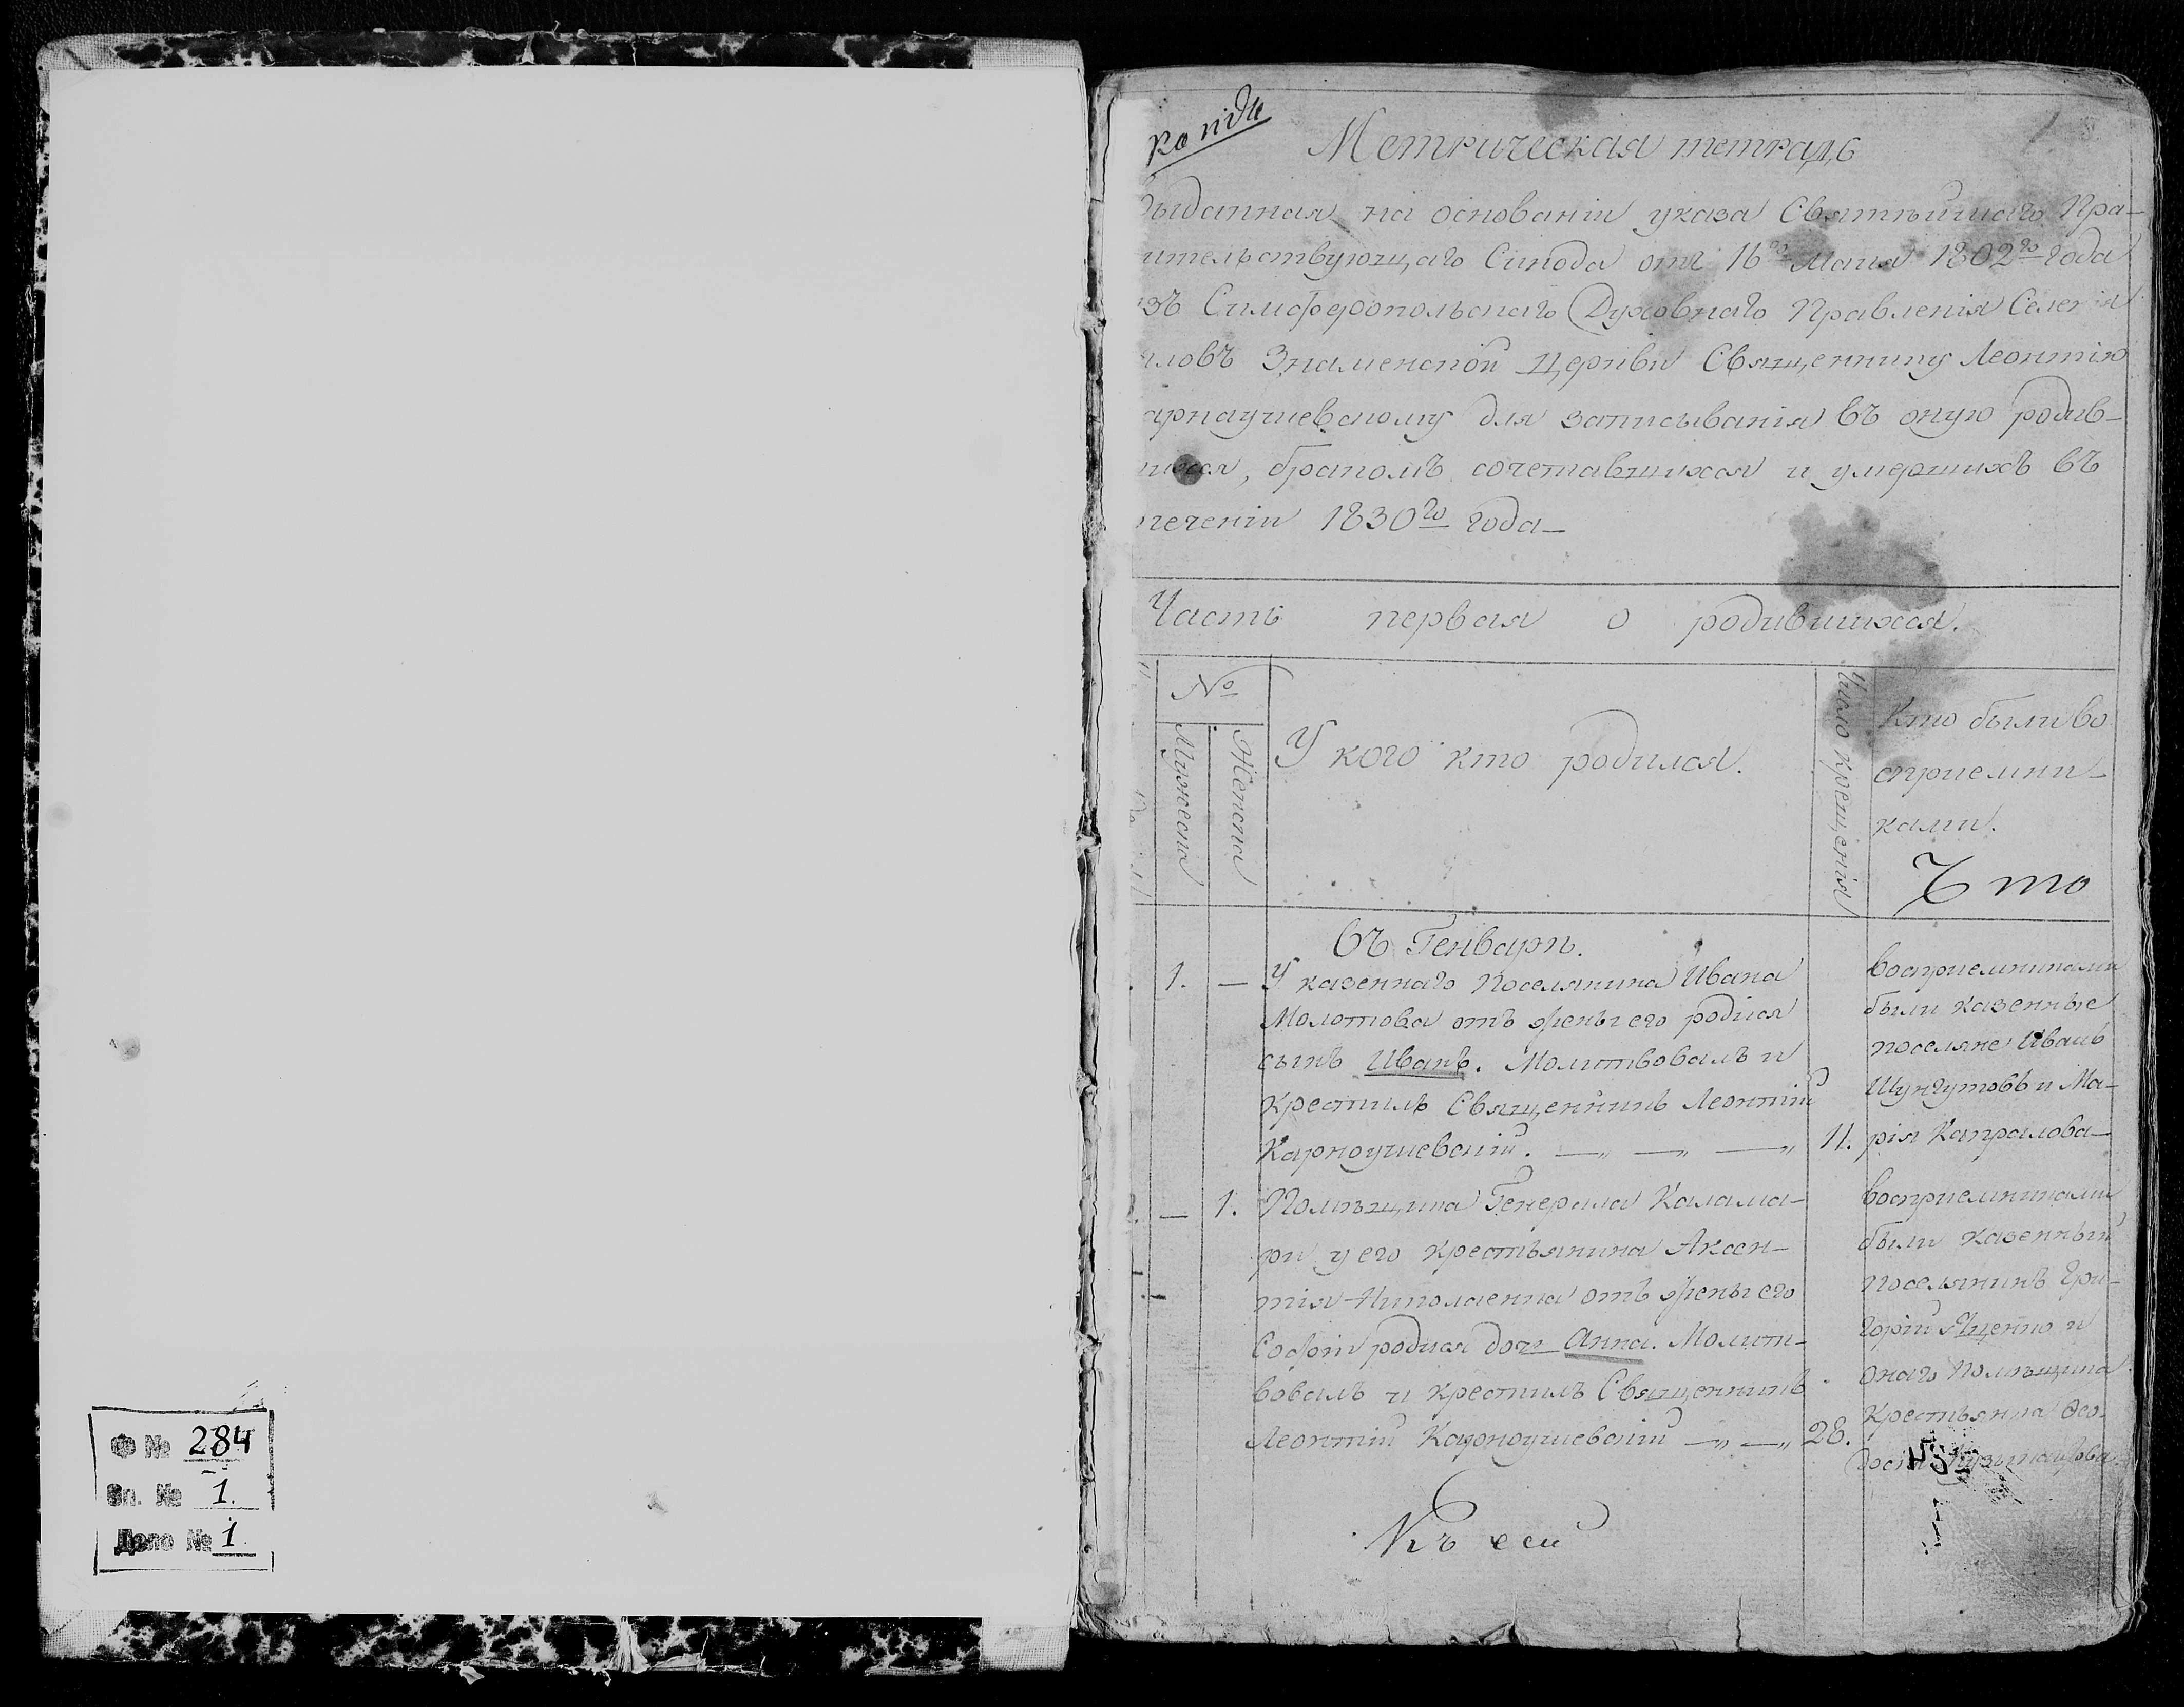 Ф № 284
Оп. № 1.
Дело № 1.
копія
Метрическая тетрадь
выданная на основаніи указа Святѣйшаго Пра-
ительствующаго Синода отъ 16го Маия 1802го года
зъ Симферопольскаго Духовнаго Правленія Селенія
ловъ Знаменской Церкви Священнику Леонтію
арнаушевскому для записыванія въ оную родив-
шихся, бракомъ сочетавшихся и умершихъ въ
течении 1830го года
Часть первая о родившихся.
№
Мужеска
Женска
У кого кто родился.
Число крещенія
Кто были во
сприемни-
ками.
Что
въ Генварѣ.
1. — У казеннаго поселянина Ивана
Молотова отъ жены его родился
сынъ Иванъ. Молитвовалъ и
крестилъ Священникъ Леонтій
Карноушевскій. 11.
восприемниками
были казенные
поселяне Иванъ
Шунгутовъ и Ма-
рія Капралова
2. — 1. Помѣщика Генерала Калама-
ри у его крестьянина Аксен-
тія Николаенка отъ жены его
Софіи родися дочь Анна. Молит-
вовалъ и крестилъ Священникъ
Леонтій Карноушевскій 28.
восприемниками
были казенный
поселянинъ Гри-
горій Ященко и
онаго помѣщика
крестьянка Ѳео-
досія
Къ сей